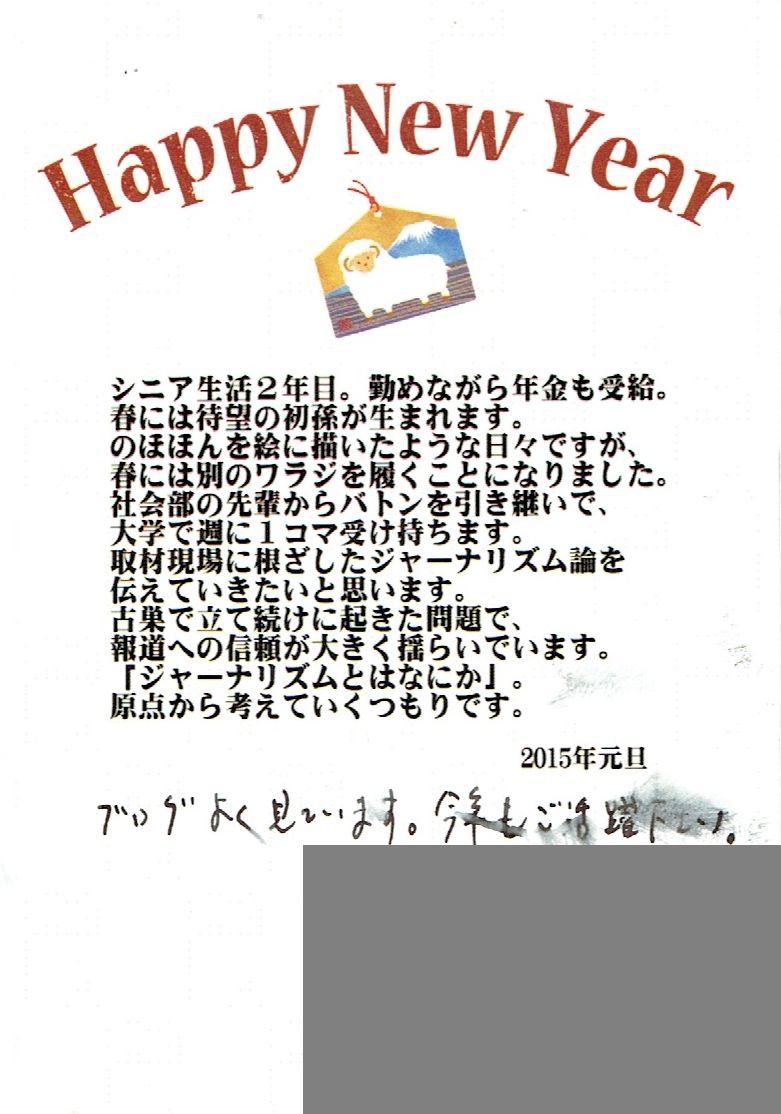 Happy New Year
シニア生活２年目。勤めながら年金も受給。
春には待望の初孫が生まれます。
のほほんを絵に描いたような日々ですが、
春には別のワラジを履くことになりました。
社会部の先輩からバトンを引き継いで、
大学で週に１コマ受け持ちます。
取材現場に根ざしたジャーナリズム論を
伝えていきたいと思います。
古巣で立て続けに起きた問題で、
報道への信頼が大きく揺らいでいます。
『ジャーナリズムとはなにか』。
原点から考えていくつもりです。
2015年元旦
ブログよく見ています。今年もご活躍下さい。